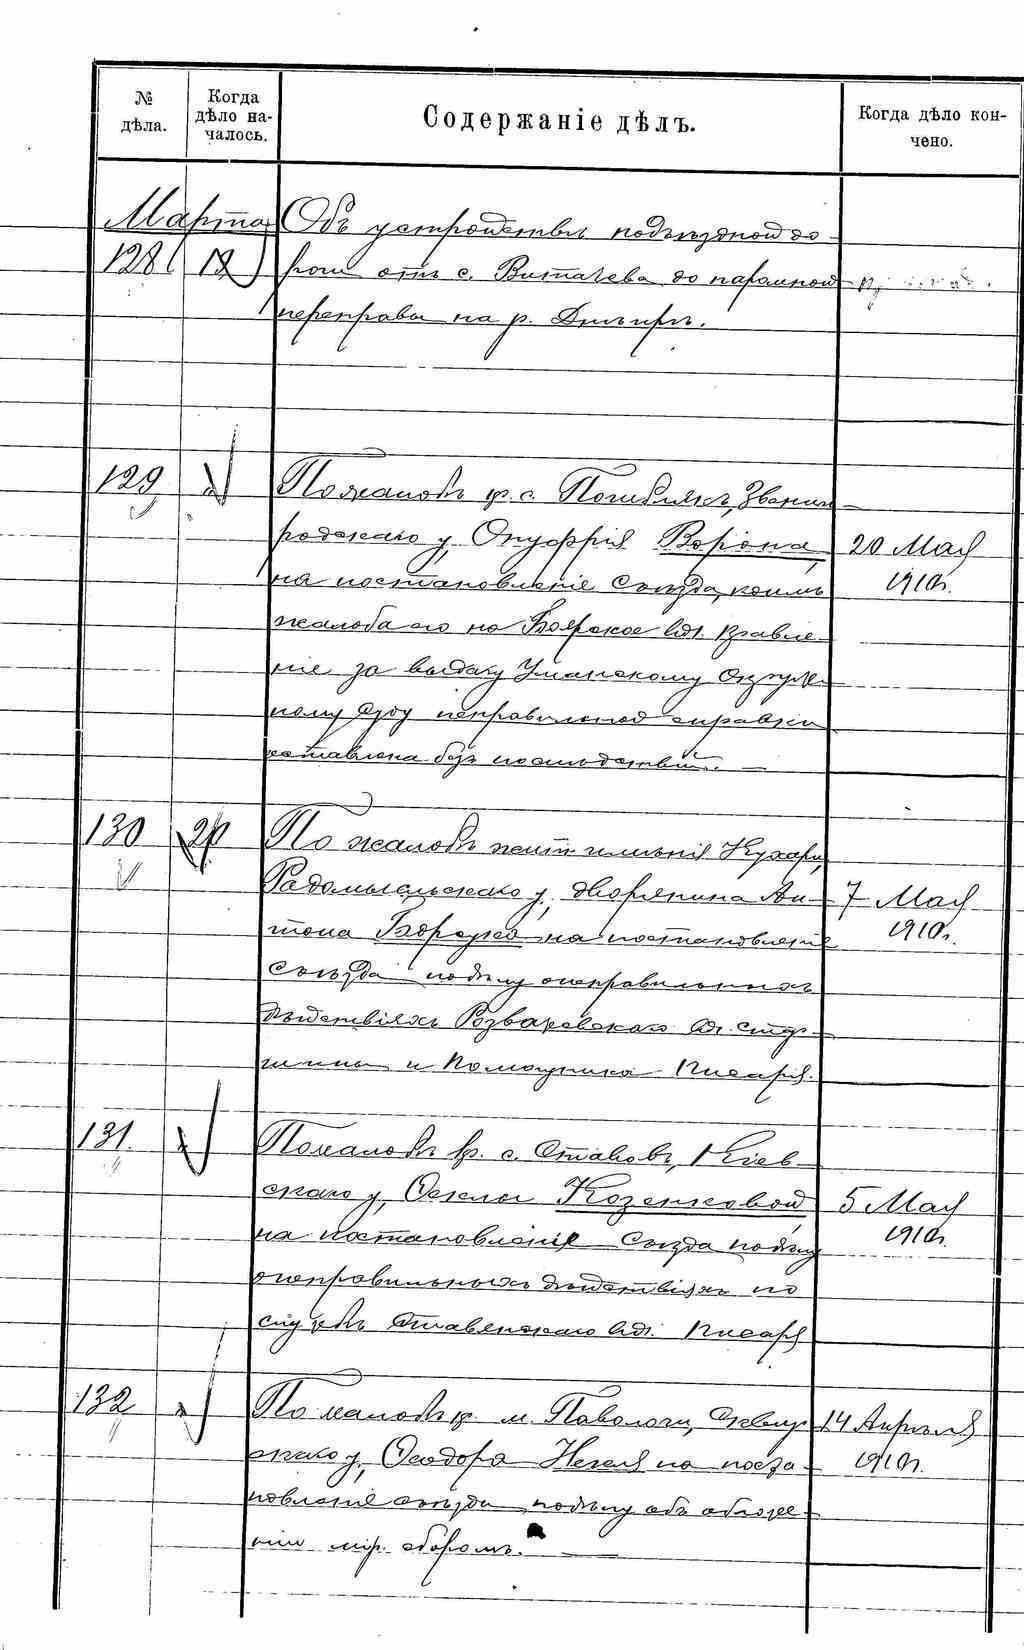 № дѣла.
Когда дѣло началось.
Содержаніе дѣлъ.
Когда дѣло кончено.
Марта
128 19 Объ устройствѣ подъѣздной до-
роги отъ с. Витачева до паромной
переправы на р. Днѣпрѣ.
129 По жалобѣ кр. с. Погибляка, Звениго-
родскаго у, Онуфрія Ворона,
на постановленіе Съѣзда, коимъ
жалоба его на Боярское вол. правле-
ніе за выдачу Уманскому Окруж-
ному Суду неправильной справки
оставлена безъ послѣдствій. —
20 Мая
1910г.
130 20 По жалобѣ жит. имѣнія Кухари,
Радомысльскаго у, дворянина Ан-
тона на постановленіе
съѣзда по дѣлу о неправильныхъ
дѣйствіяхъ Розважевскаго вол. стар-
шины и Помощника Писаря.
7 Мая
1910г.
131. По жалобѣ кр. с. Ставовъ, Кіев-
скаго у, Феклы Козенковой
на постановленіе Съѣзда по дѣлу
о неправильныхъ дѣйствіяхъ по
службѣ Ставенскаго вол. Писаря
5 Мая
1910г.
132 По жалобѣ кр. м. Паволочи, Сквир-
скаго у, Ѳеодора на поста-
новленіе съѣзда по дѣлу объ обложе-
ніи мір. сборомъ. —
14 Апрѣля
1910г.